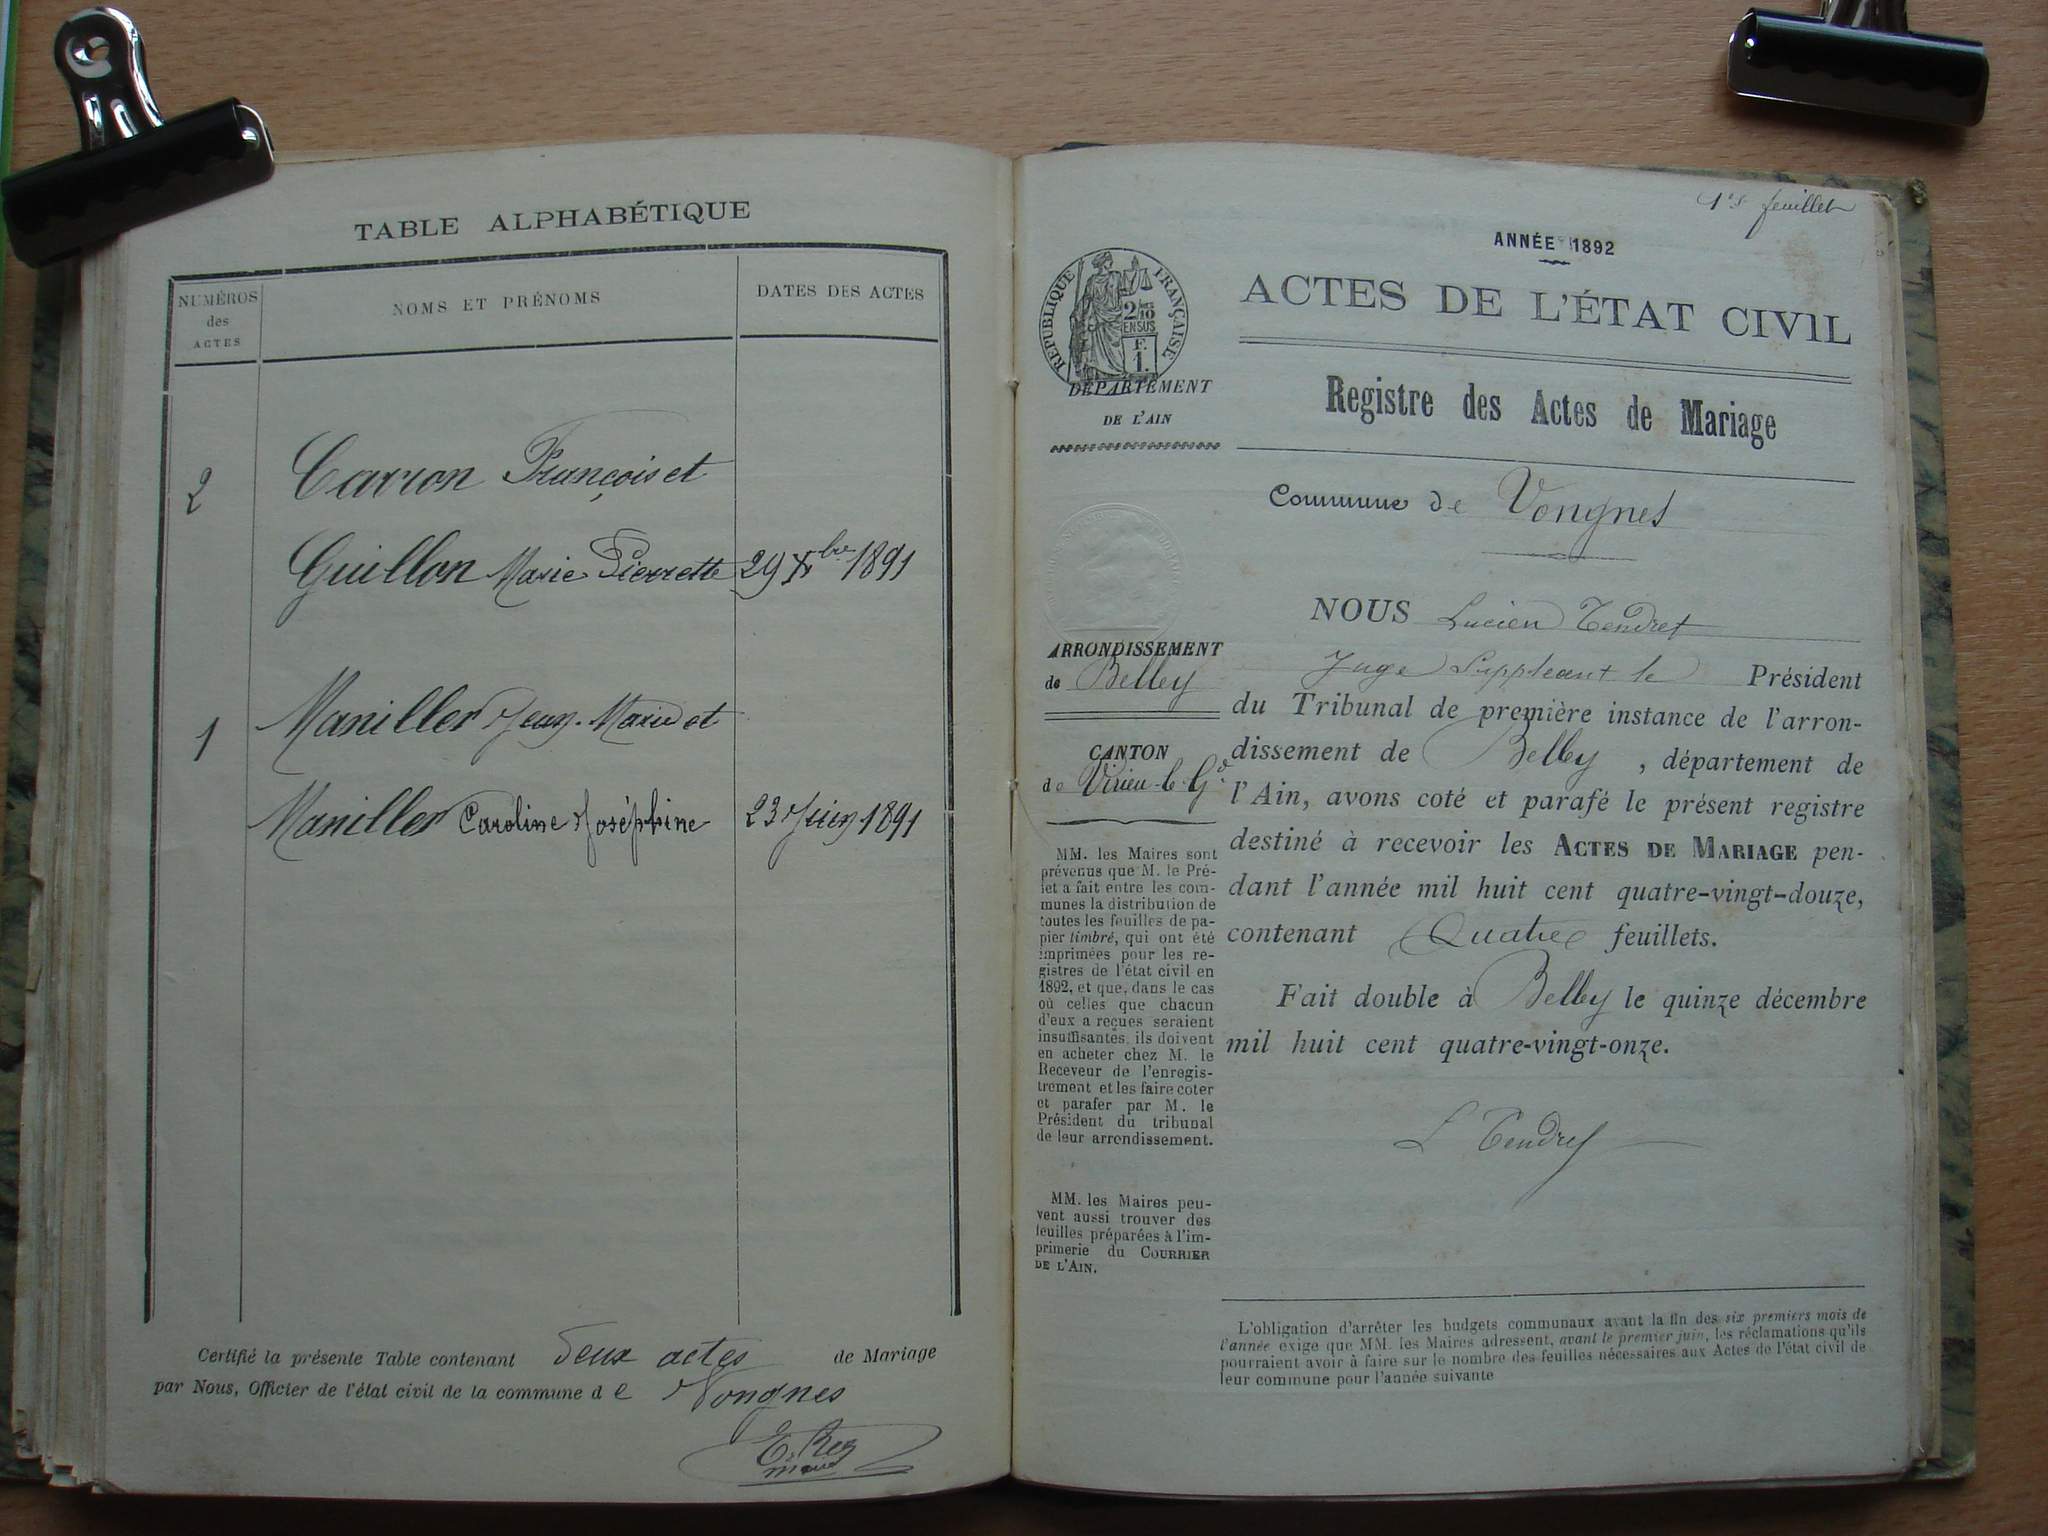 TABLE ALPHABÉTIQUE
NUMÉROS
des
ACTES
NOMS ET PRÉNOMS
DATES DES ACTES
2
Carron François et
Guillon Marie Pierrette 29 Xbre 1891
1
Maniller Jean-Marie et
Maniller Caroline Joséphine 23 Juin 1891
Certifié la présente Table contenant deux actes de Mariage
par Nous, Officier de l'état civil de la commune de Vongnes
E. Rey
maire
1er feuillet
ANNÉE 1892
ACTES DE L'ÉTAT CIVIL
RÉPUBLIQUE FRANÇAISE
2/10
EN SUS
F.
1.
DÉPARTEMENT
DE L'AIN
Registre des Actes de Mariage
Commune de Vongnes
ARRONDISSEMENT
de Belley
CANTON
de Virieu-le-Gd
MM. les Maires sont
prévenus que M. le Pré-
fet a fait entre les com-
munes la distribution de
toutes les feuilles de pa-
pier timbré, qui ont été
imprimées pour les re-
gistres de l'état civil en
1892, et que, dans le cas
où celles que chacun
d'eux a reçues seraient
insuffisantes, ils doivent
en acheter chez M. le
Receveur de l'enregis-
trement et les faire coter
et parafer par M. le
Président du tribunal
de leur arrondissement.
MM. les Maires peu-
vent aussi trouver des
feuilles préparées à l'im-
primerie du COURRIER
DE L'AIN.
NOUS Lucien Tendret
Juge Suppléant le Président
du Tribunal de première instance de l'arron-
dissement de Belley, département de
l'Ain, avons coté et parafé le présent registre
destiné à recevoir les ACTES DE MARIAGE pen-
dant l'année mil huit cent quatre-vingt-douze,
contenant Quatre feuillets.
Fait double à Belley le quinze décembre
mil huit cent quatre-vingt-onze.
L Tendret
L'obligation d'arrêter les budgets communaux avant la fin des six premiers mois de
l'année exige que MM. les Maires adressent, avant le premier juin, les réclamations qu'ils
pourraient avoir à faire sur le nombre des feuilles nécessaires aux Actes de l'état civil de
leur commune pour l'année suivante